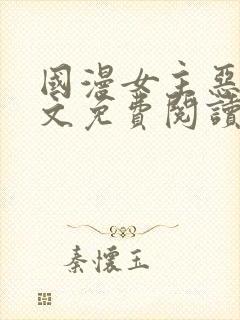 國漫女主惡
文免費閱讀
秦懷玉